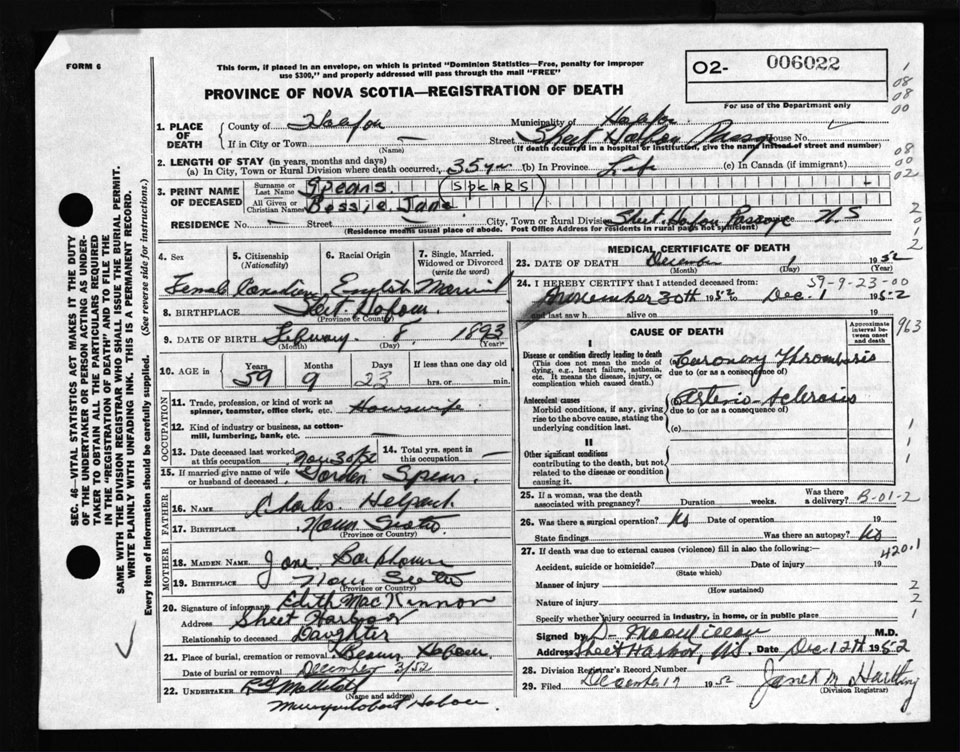 FORM 6
This form, if placed in an envelope, on which is printed "Dominion Statistics—Free, penalty for improper
use $300," and properly addressed will pass through the mail "FREE"
O2- 006022
For use of the Department only
PROVINCE OF NOVA SCOTIA—REGISTRATION OF DEATH
1. PLACE OF DEATH
County of Halifax Municipality of Halifax
If in City or Town — (Name) Street Sheet Harbour Passage House No.
(If death occurred in a hospital or institution, give the name instead of street and number)
2. LENGTH OF STAY (in years, months and days)
(a) In City, Town or Rural Division where death occurred, 35 yrs (b) In Province Life (c) In Canada (if immigrant)
3. PRINT NAME OF DECEASED
Surname or Last Name Spears (SPEARS)
All Given or Christian Names Bessie Jane
RESIDENCE No. — Street — City, Town or Rural Division Sheet Harbour Passage N.S
(Residence means usual place of abode. Post Office Address for residents in rural parts not sufficient)
4. Sex Female
5. Citizenship (Nationality) Canadian
6. Racial Origin English
7. Single, Married, Widowed or Divorced (write the word) Married
8. BIRTHPLACE Sheet Harbour
(Province or Country)
9. DATE OF BIRTH February 8, 1893
(Month) (Day) (Year)
10. AGE in Years 59 Months 9 Days 23 If less than one day old
hrs. or min.
OCCUPATION
11. Trade, profession, or kind of work as
spinner, teamster, office clerk, etc. Housewife
12. Kind of industry or business, as cotton-
mill, lumbering, bank, etc. —
13. Date deceased last worked
at this occupation Nov 30/52
14. Total yrs. spent in
this occupation —
15. If married give name of wife
or husband of deceased Gordon Spears.
FATHER
16. NAME Charles
17. BIRTHPLACE Nova Scotia
(Province or Country)
MOTHER
18. MAIDEN NAME Jane
19. BIRTHPLACE Nova Scotia
(Province or Country)
20. Signature of informant Edith MacKinnon
Address Sheet Harbour
Relationship to deceased Daughter
21. Place of burial, cremation or removal Harbour
Date of burial or removal December 3/52
22. UNDERTAKER
(Name and address)
Musquodoboit Harbour.
MEDICAL CERTIFICATE OF DEATH
23. DATE OF DEATH December 1 1952
(Month) (Day) (Year)
59-9-23-00
24. I HEREBY CERTIFY that I attended deceased from:
November 30th 1952 to Dec. 1 1952
and last saw h alive on 19
CAUSE OF DEATH
Approximate interval between onset and death
I
Disease or condition directly leading to death
(This does not mean the mode of
dying, e.g., heart failure, asthenia,
etc. It means the disease, injury, or
complication which caused death.)
Coronary Thrombosis
due to (or as a consequence of)
Antecedent causes
Morbid conditions, if any, giving
rise to the above cause, stating the
underlying condition last.
Arterio-sclerosis
due to (or as a consequence of)
(c)
II
Other significant conditions
contributing to the death, but not
related to the disease or condition
causing it.
25. If a woman, was the death
associated with pregnancy? Duration weeks. Was there
a delivery? B-01-2
26. Was there a surgical operation? No Date of operation 19
State findings Was there an autopsy? No
27. If death was due to external causes (violence) fill in also the following:— 420.1
Accident, suicide or homicide? Date of injury 19
(State which)
Manner of injury
(How sustained)
Nature of injury
Specify whether injury occurred in industry, in home, or in public place
Signed by D MacMillan M.D.
Address Sheet Harbor, N.S. Date Dec. 12th 1952
28. Division Registrar's Record Number
29. Filed December 17 1952
(Division Registrar)
SEC. 46—VITAL STATISTICS ACT MAKES IT THE DUTY
OF THE UNDERTAKER OR PERSON ACTING AS UNDER-
TAKER TO OBTAIN ALL THE PARTICULARS REQUIRED
IN THE "REGISTRATION OF DEATH" AND TO FILE THE
SAME WITH THE DIVISION REGISTRAR WHO SHALL ISSUE THE BURIAL PERMIT.
WRITE PLAINLY WITH UNFADING INK. THIS IS A PERMANENT RECORD.
Every item of information should be carefully supplied. (See reverse side for instructions.)
1
08
08
00
08
00
02
2
0
1
2
963
1
1
1
2
2
1